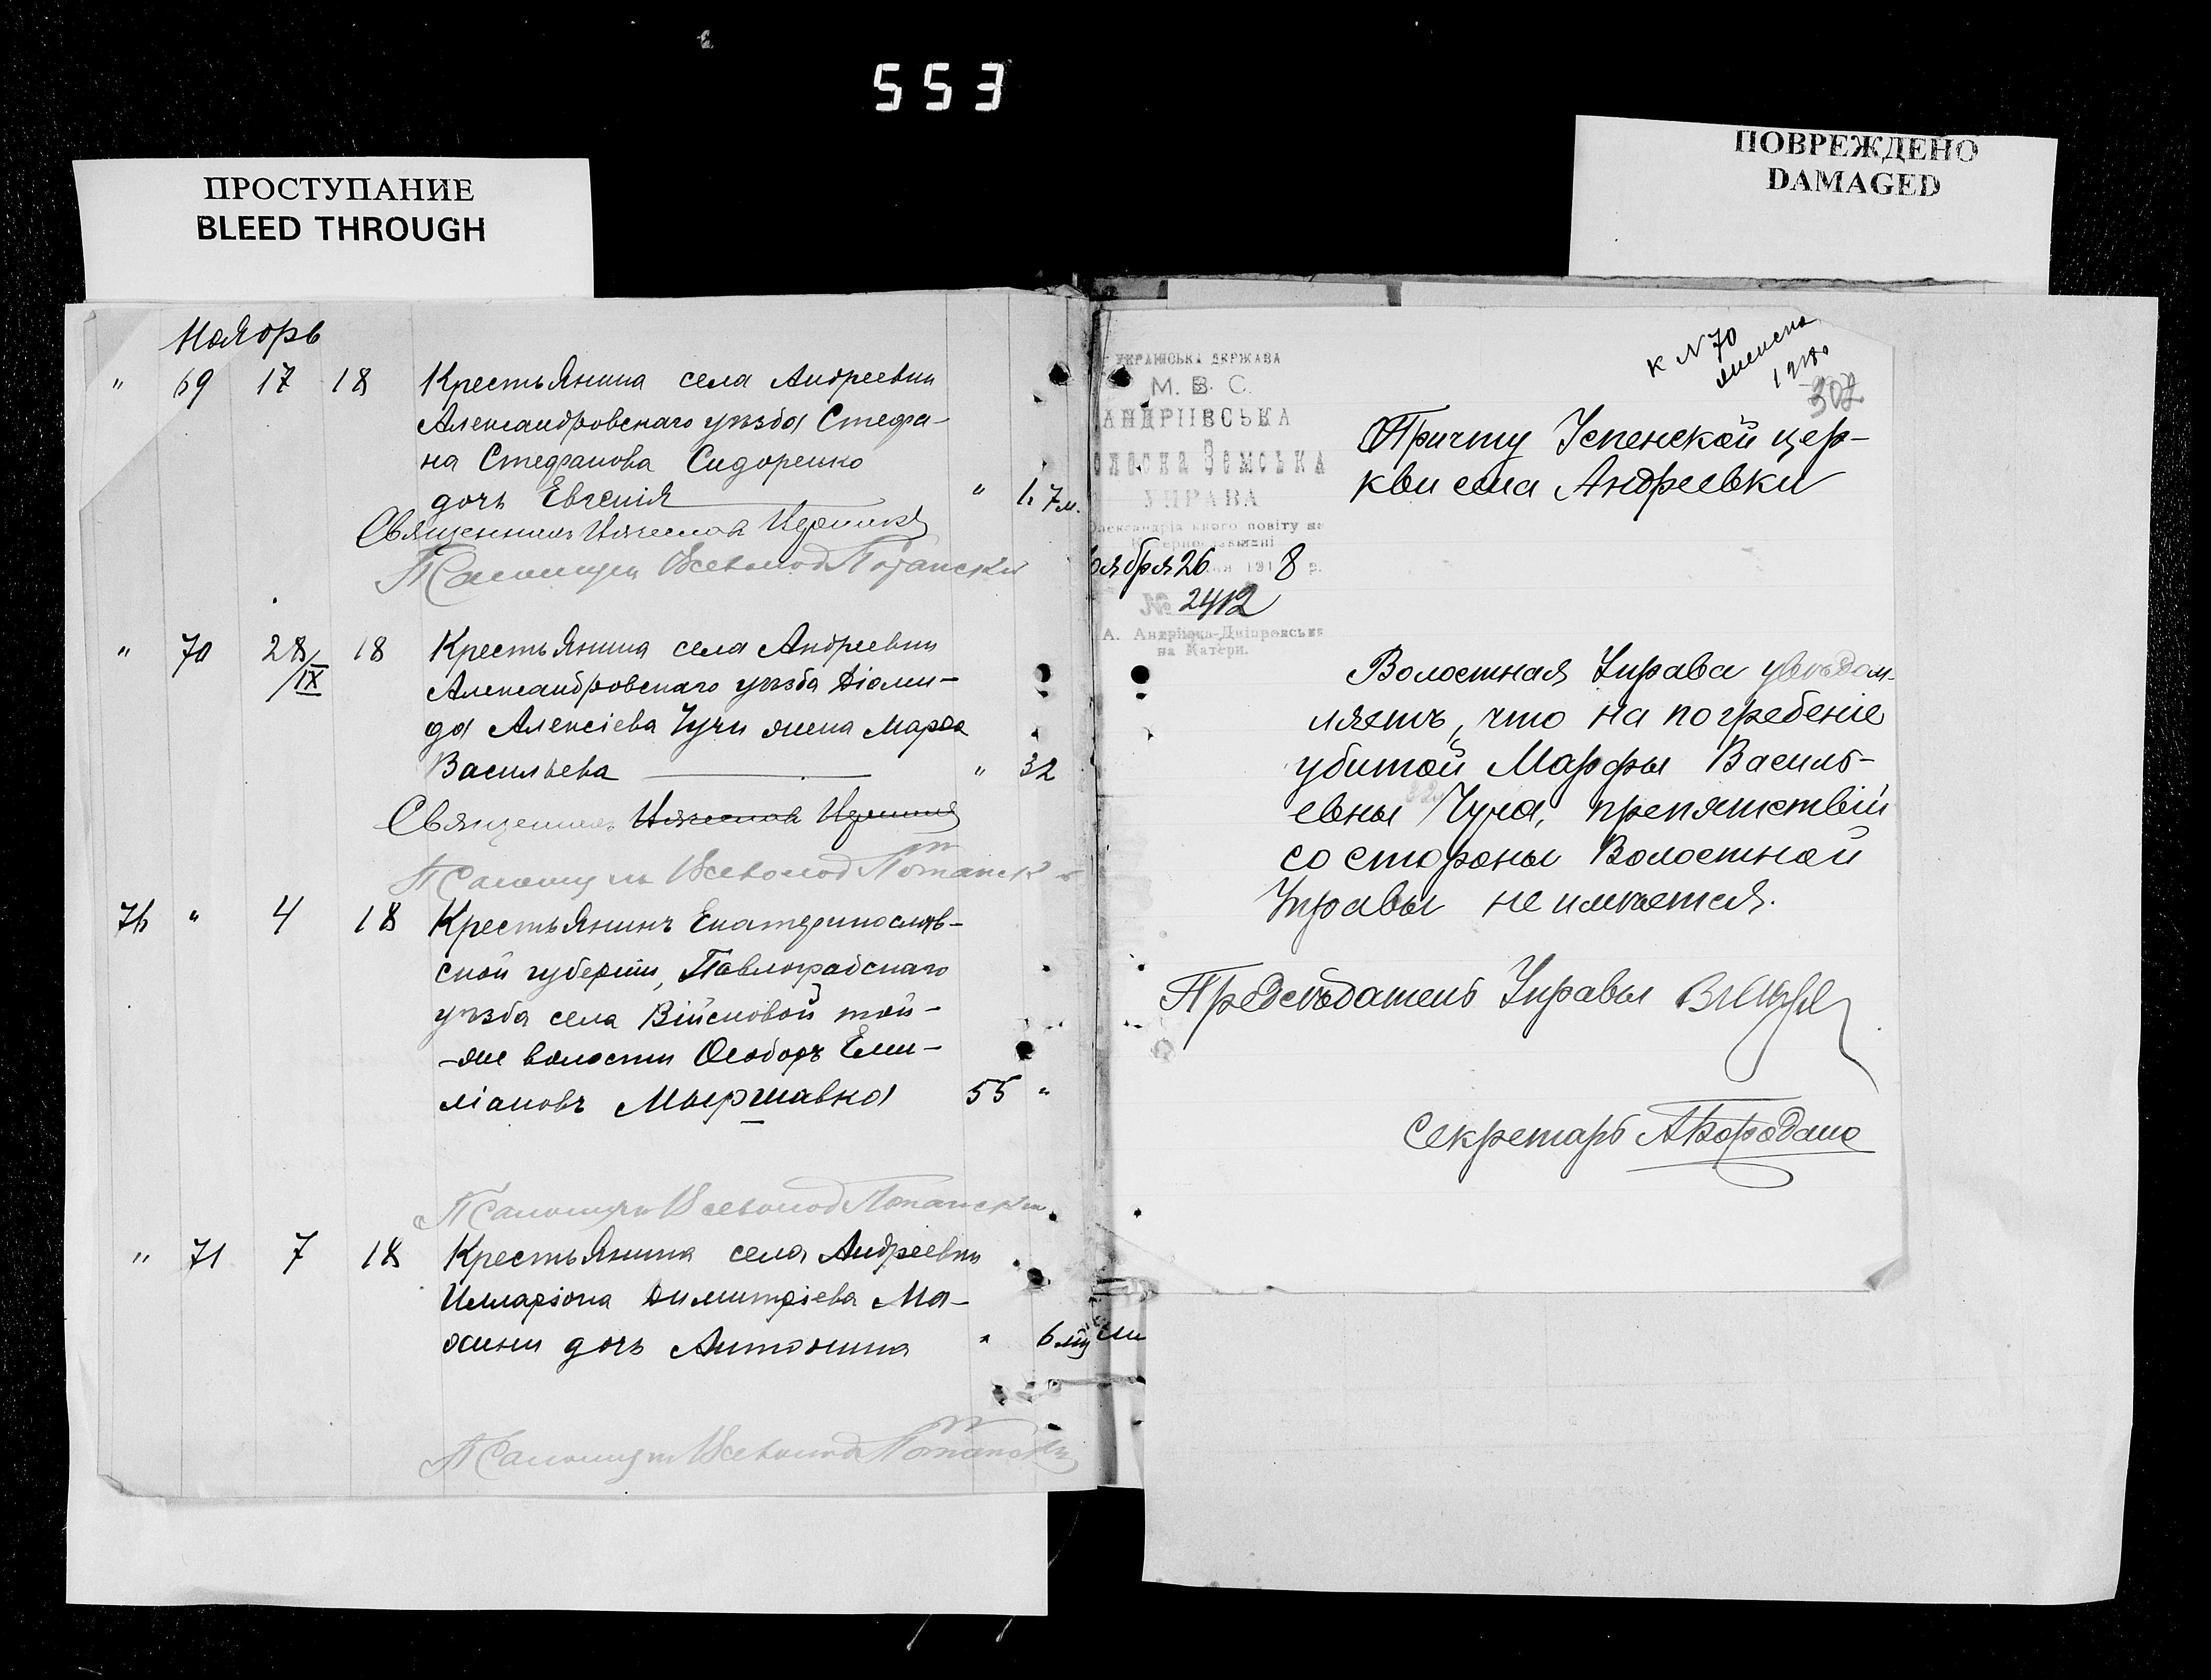 553
ПРОСТУПАНИЕ
BLEED THROUGH
ПОВРЕЖДЕНО
DAMAGED
Ноябрь
" 69 17 18 Крестьянина села Андреевки
Александровскаго уѣзда Стефа-
на Стефанова Сидоренко
дочь Евгенія " 1. 7 м.
Священникъ
Псаломщикъ Всеволод Потапскій
" 70 28/IX 18 Крестьянина села Андреевки
Александровскаго уѣзда Діоми-
да Алексіева Чучи жена Марѳа
Васильева " 32
Священникъ
Псаломщикъ Всеволод Потапскій
76 " 4 18 Крестьянинъ Екатеринослав-
ской губерніи, Павлоградскаго
уѣзда села Війсковой той-
-же волости Ѳеодоръ Еми-
ліановъ Мыршавка 55 "
Псаломщикъ Всеволод Потапскій
" 71 7 18 Крестьянина села Андреевки
Илларіона Димитріева Ма-
хини дочь Антонина " 6
Псаломщикъ Всеволод Потапскій
к N 70
женска
1918
307
УКРАЇНСЬКА ДЕРЖАВА
М. В. С.
АНДРІІВСЬКА
олосна Земська
УПРАВА
повіту на
оября 26 1918 р.
№ 2412
А. Андрівка-Дніпровська
на Катери.
Причту Успенской цер-
кви села Андреевки
Волостная Управа увѣдом-
ляетъ, что на погребеніе
убитой Марфы Василь-
евны Чуча, препятствій
со стороны Волостной
Управы не имѣется.
Предсѣдатель Управы
Секретарь